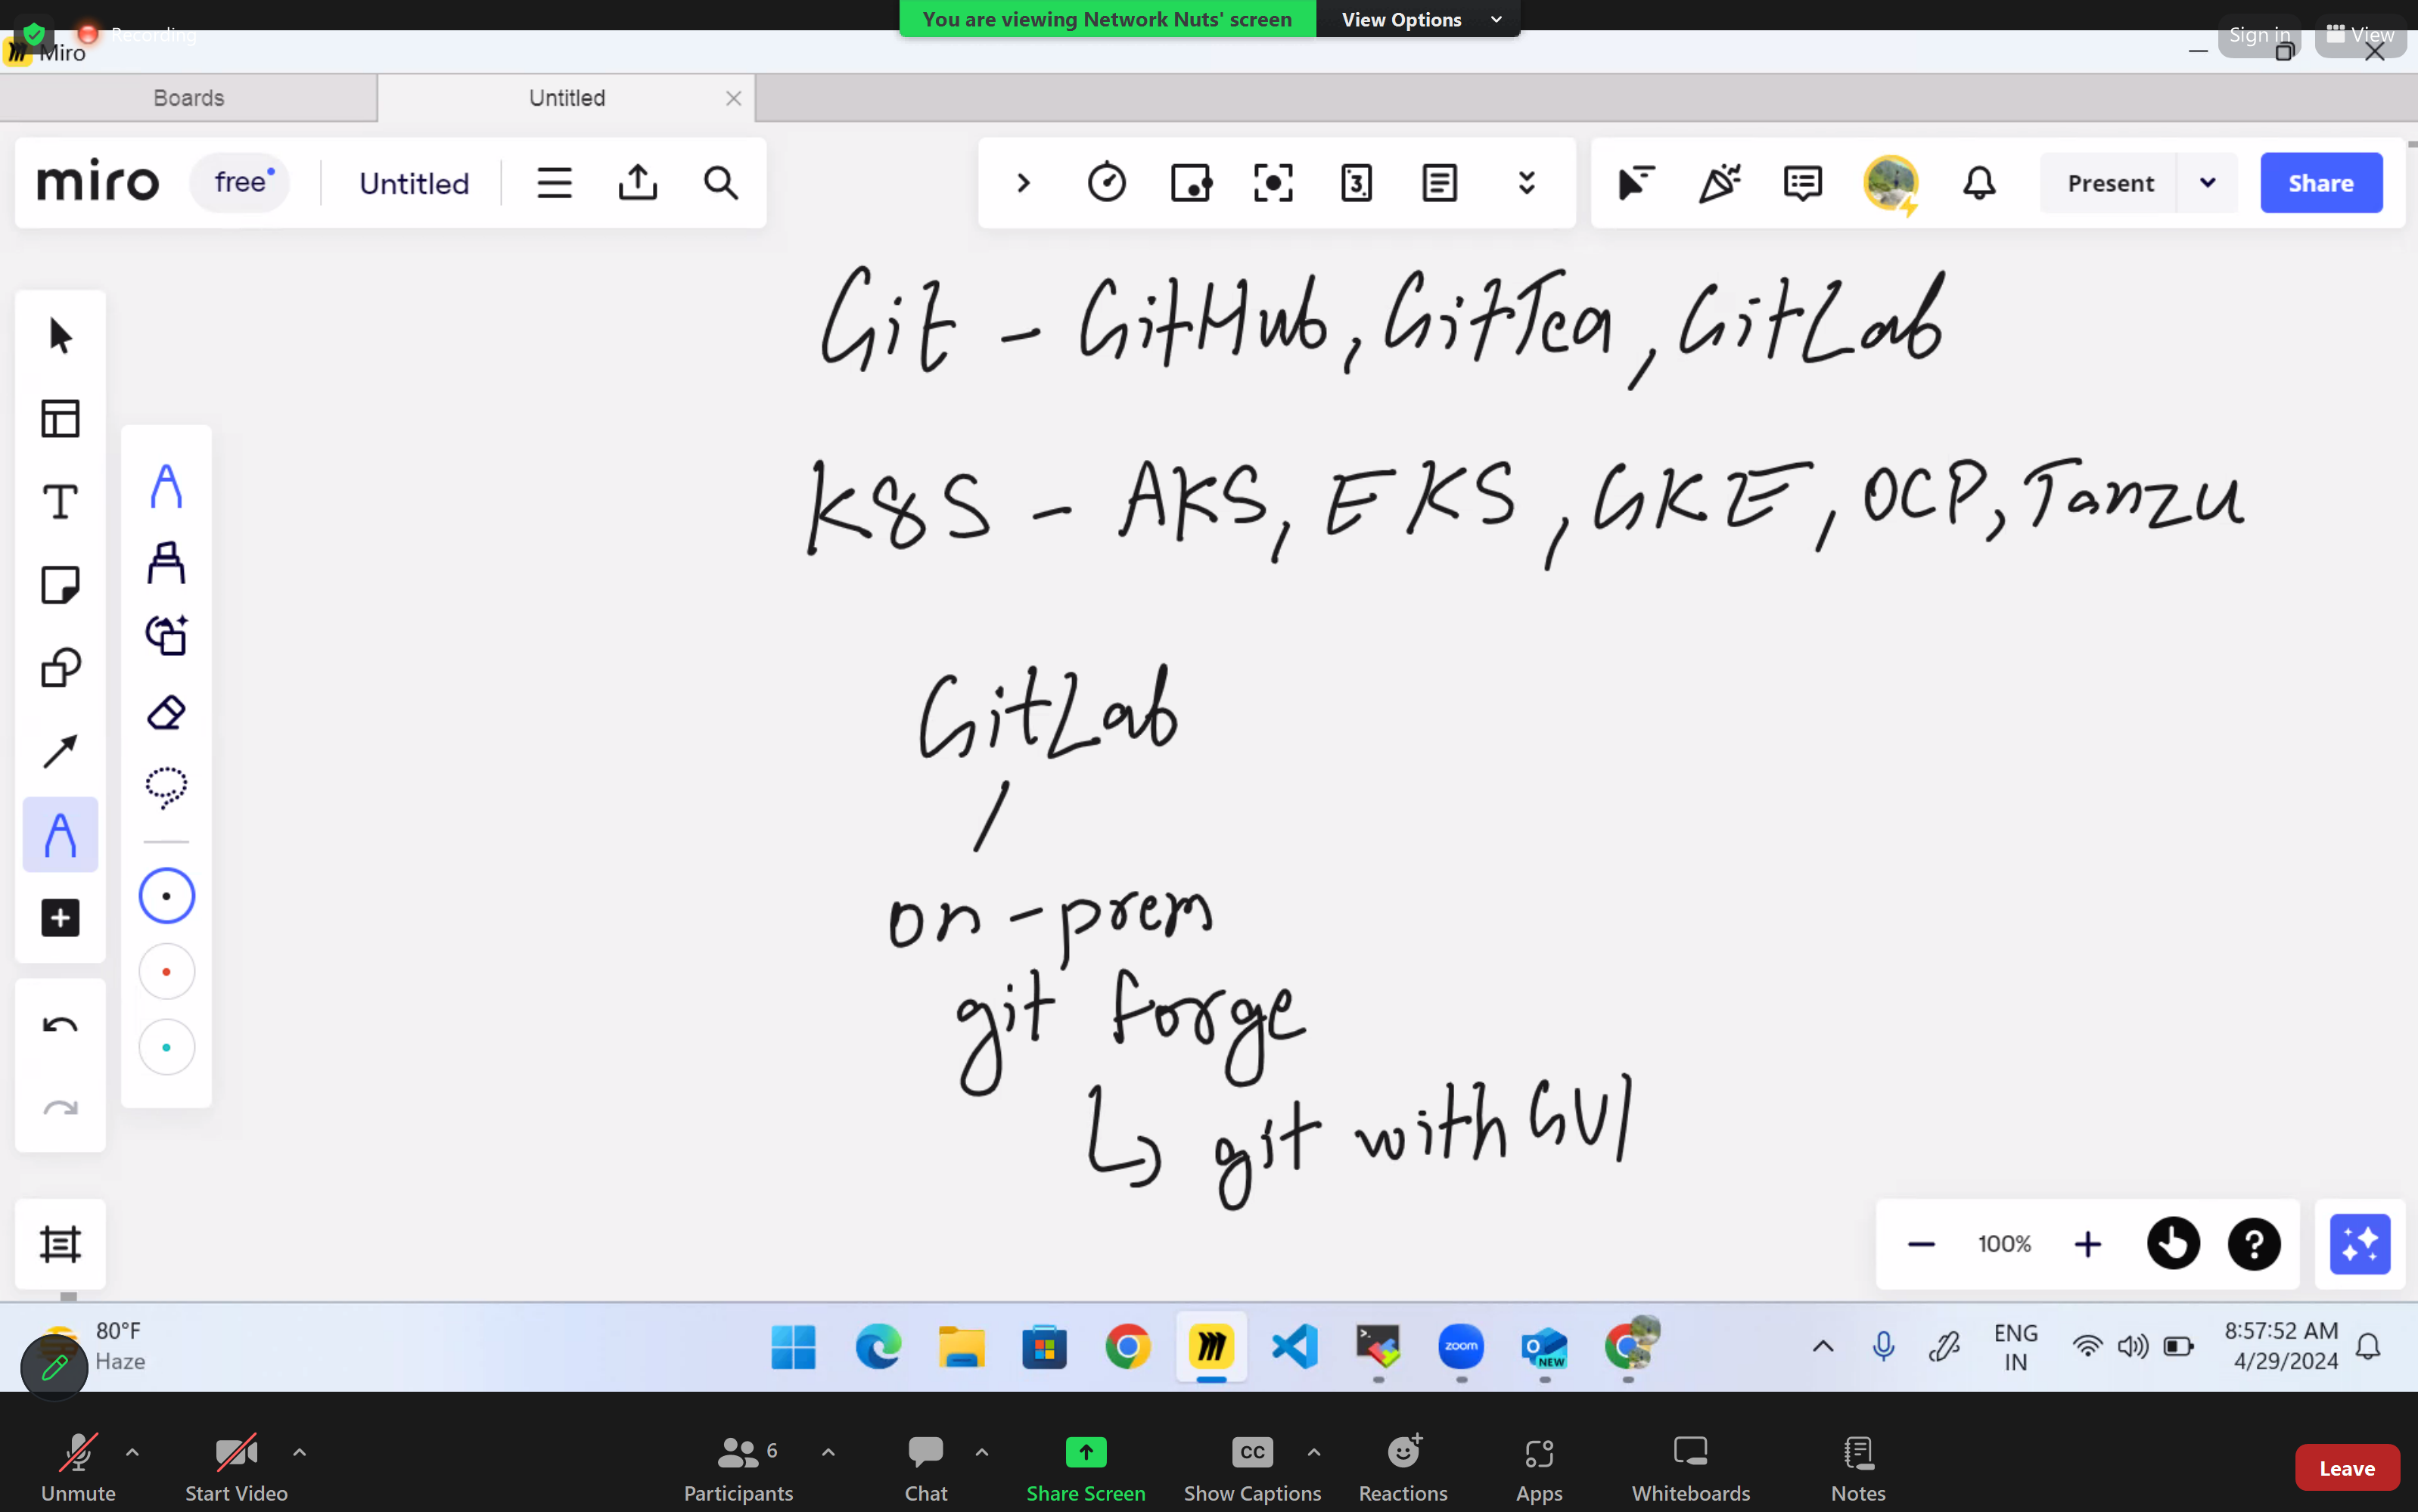 You are viewing Network Nuts' screen View Options
Recording
Sign in View
Miro
Boards Untitled
miro free Untitled
3
Present Share
Git - GitHub, GitTea, GitLab
K8S - AKS, EKS, GKE, OCP, Tanzu
GitLab
on-prem
git forge
git with GUI
100%
80°F
Haze
zoom
NEW
ENG
IN
8:57:52 AM
4/29/2024
6
CC
Unmute Start Video Participants Chat Share Screen Show Captions Reactions Apps Whiteboards Notes Leave